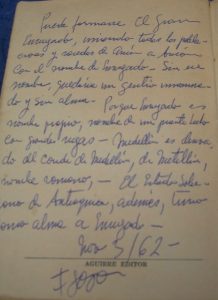 Puede formarse El Gran
Envigado, uniendo todas las
y de Ancón a Ancón
Con el nombre de Envigado - Sin ese
nombre, quedaría un gentío
do y sin alma. Porque Envigado es
nombre propio, nombre de un
con grandes vigas - Medellín es
do del conde de Medellín, de Metellin,
nombre romano, - El Estado Sobe-
rano de Antioquia, ademas, tuvo
como alma a Envigado -
Nov 3/62 -
AGUIRRE EDITOR